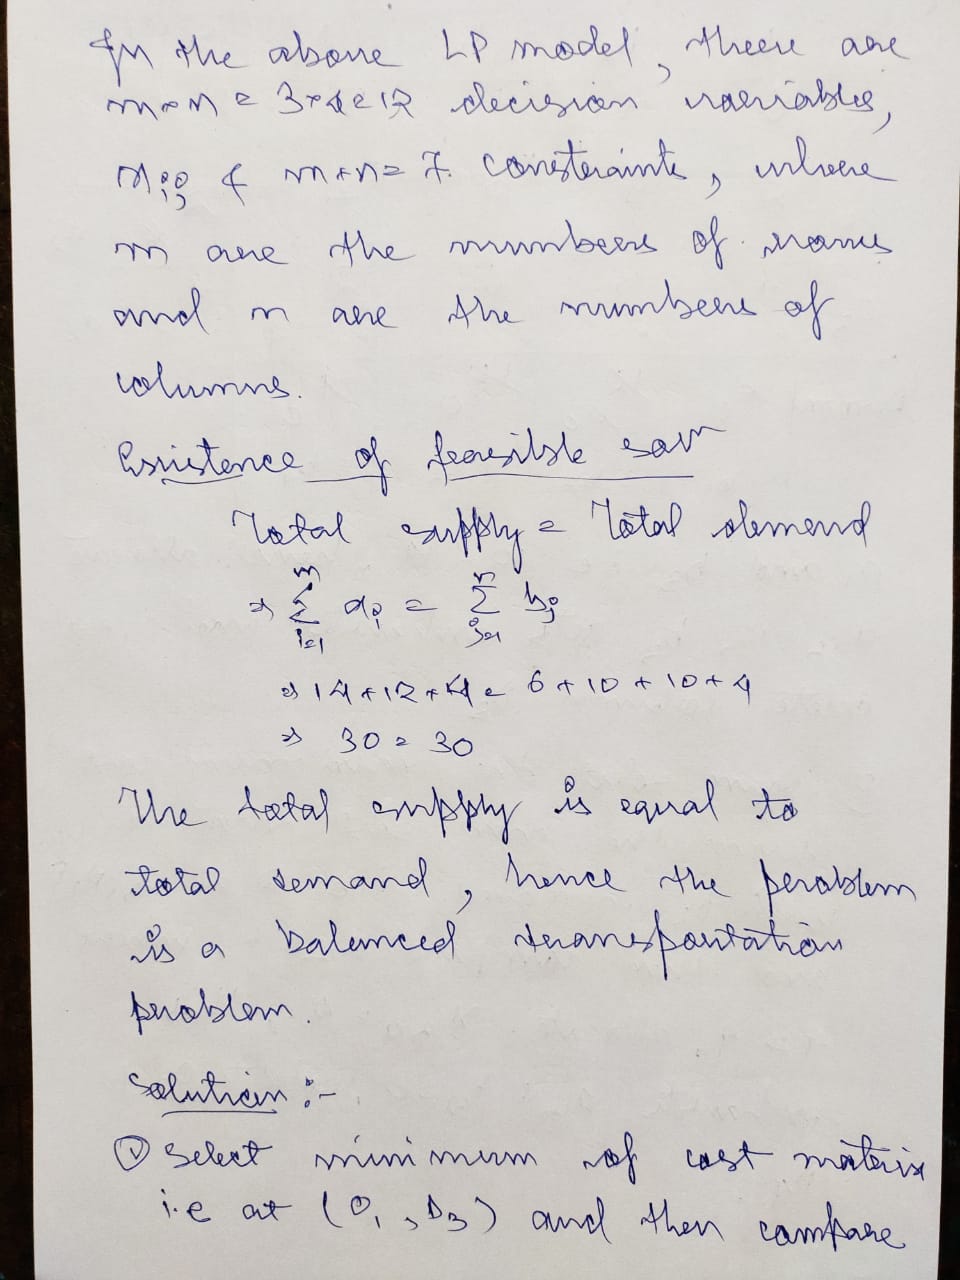 In the above LP model, there are
m×n = 3×4 = 12 decision variables,
xij & m+n = 7. constraints, where
m are the numbers of rows
and n are the numbers of
columns.
Existence of feasible solⁿ
Total supply = Total demand
⇒ m Σ i=1 ai = n Σ j=1 bj
⇒ 14+12+4 = 6+10+10+4
⇒ 30 = 30
The total supply is equal to
total demand, hence the problem
is a balanced transportation
problem.
Solution :-
① Select minimum of cost matrix
i.e at (O1, D3) and then compare